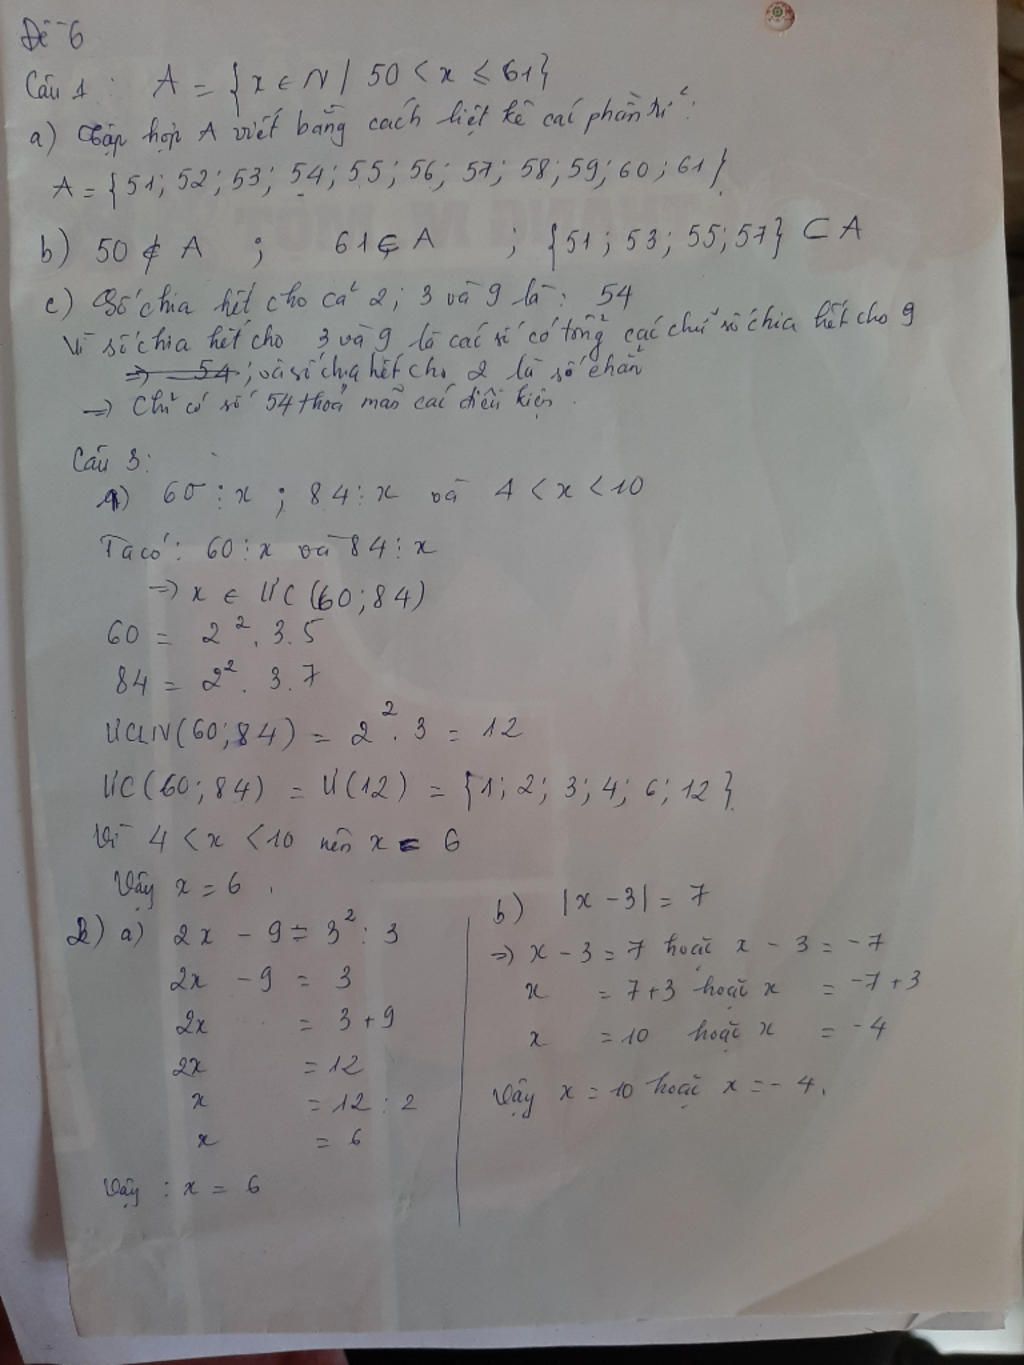 Đề 6
Câu 1 : A = { x ∈ N / 50 < x ≤ 61}
a) Tập hợp A viết bằng cách liệt kê các phần tử :
A = { 51 ; 52 ; 53 ; 54 ; 55 ; 56 ; 57 ; 58 ; 59 ; 60 ; 61 }
b) 50 ∉ A ; 61 ∈ A ; { 51 ; 53 ; 55 ; 57 } ⊂ A
c) Số chia hết cho cả 2 ; 3 và 9 là : 54
Vì số chia hết cho 3 và 9 là các số có tổng các chữ số chia hết cho 9
=> 54 ; và số chia hết cho 2 là số chẵn
=> Chỉ có số 54 thoả mãn các điều kiện .
Câu 3 :
a) 60 ⋮ x ; 84 ⋮ x và 4 < x < 10
Ta có : 60 ⋮ x và 84 ⋮ x
=> x ∈ ƯC (60 ; 84)
60 = 2² . 3 . 5
84 = 2² . 3 . 7
ƯCLN (60 ; 84) = 2² . 3 = 12
ƯC (60 ; 84) = Ư (12) = { 1 ; 2 ; 3 ; 4 ; 6 ; 12 }
Vì 4 < x < 10 nên x = 6
Vậy x = 6 .
2) a) 2x - 9 = 3² : 3
2x - 9 = 3
2x = 3 + 9
2x = 12
x = 12 : 2
x = 6
Vậy : x = 6
b) |x - 3| = 7
=> x - 3 = 7 hoặc x - 3 = -7
x = 7 + 3 hoặc x = -7 + 3
x = 10 hoặc x = -4
Vậy x = 10 hoặc x = - 4 .